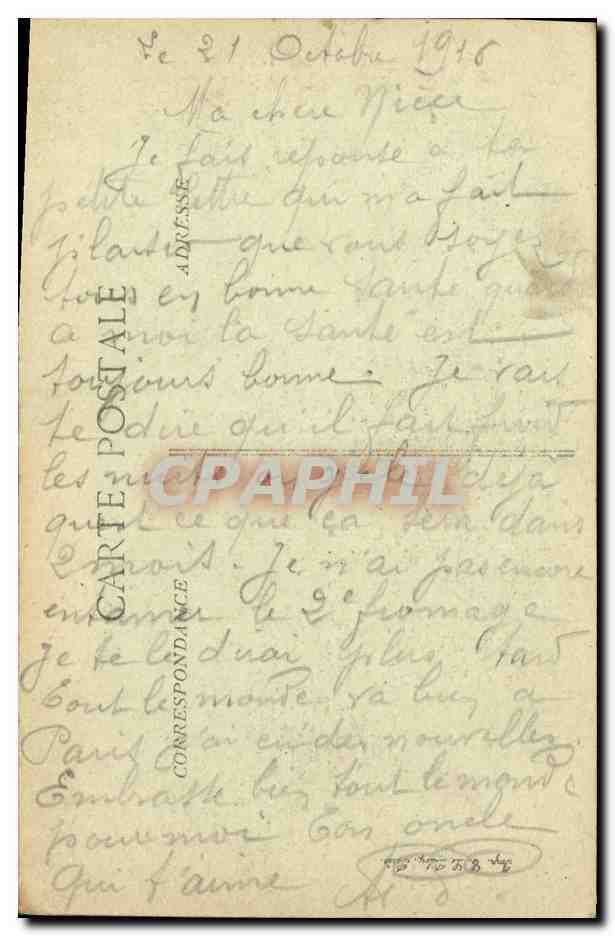 Le 21 Octobre 1916
Ma chère Nièce
Je fait reponse a ta
petite lettre qui m'a fait
plaisir que vous soyez
tous en bonne santé quand
a moi la santé est
toujours bonne. Je vais
te dire qu'il fait froid
les nuits il gele déja
quest ce que ça sera dans
2 mois. Je n'ai pas encore
entamer le 2e fromage
Je te le dirai plus tard
Tout le monde va bien a
Paris j'ai eu des nouvelles.
Embrasse bien tout le monde
pour moi Ton oncle
qui t'aime
CARTE POSTALE
ADRESSE
CORRESPONDANCE
CPAPHIL